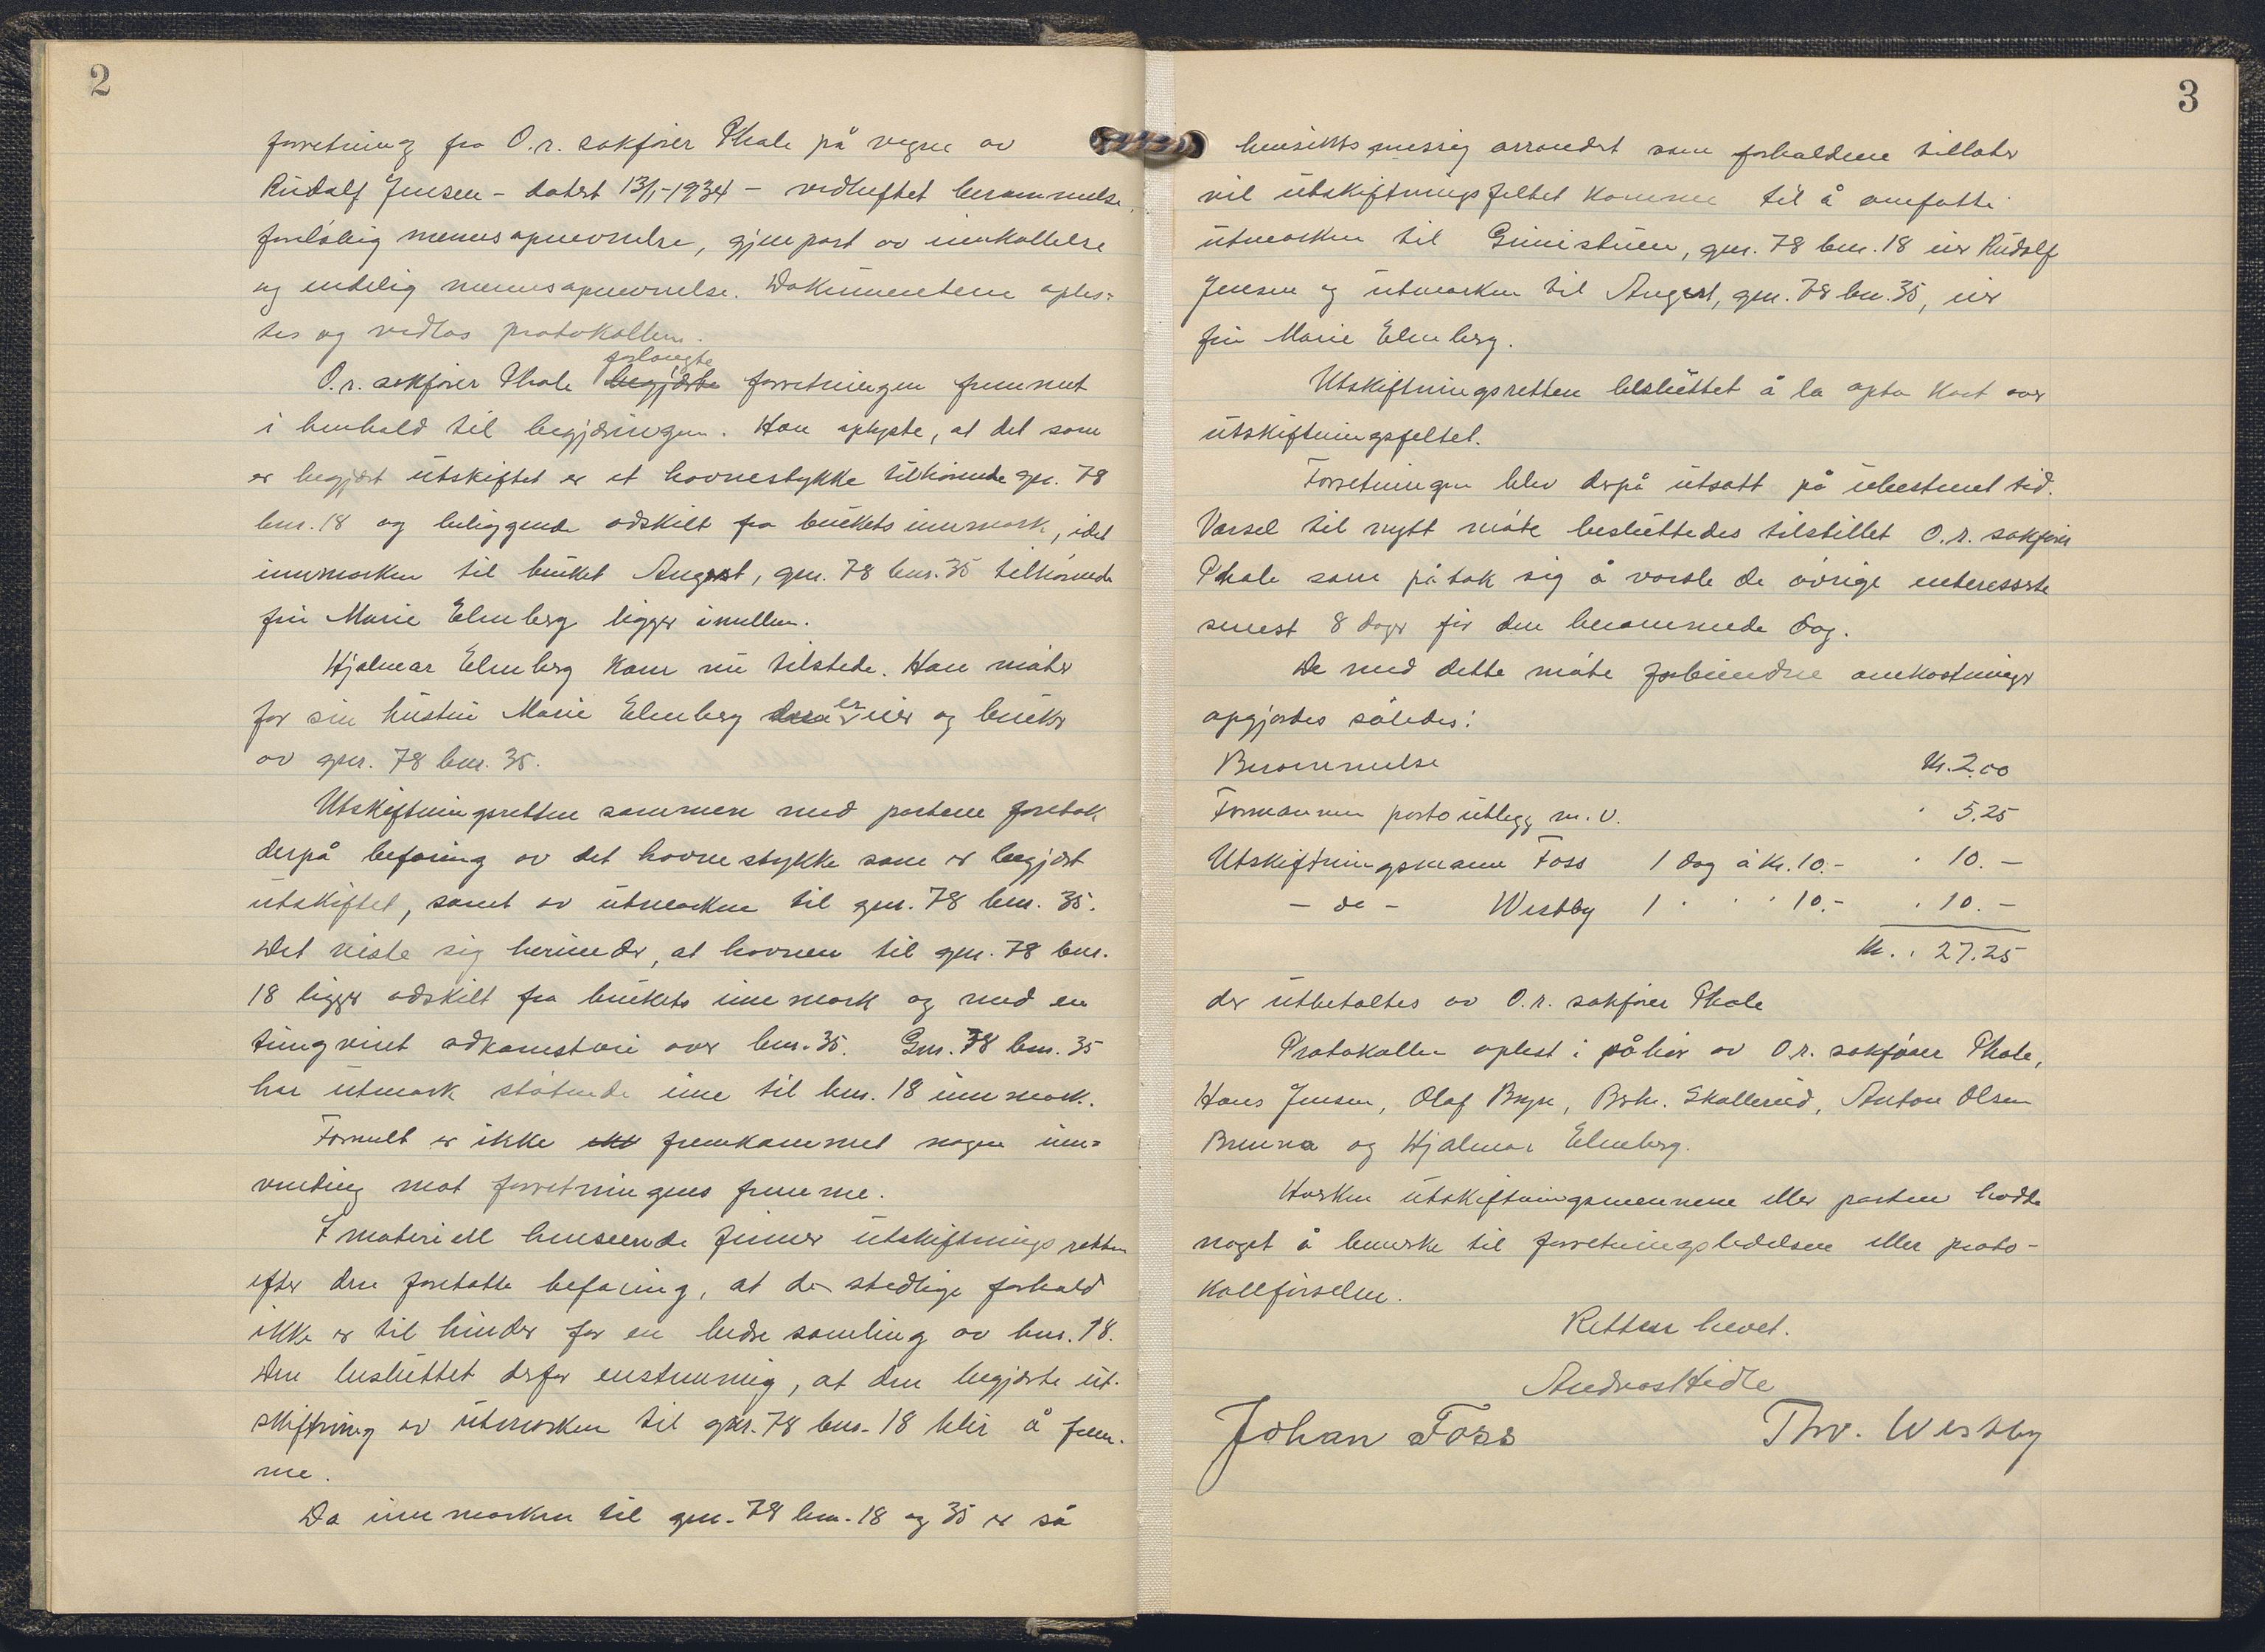 2
forretning fra O.r. sakfører Thale på vegne av
Rudolf Jensen - datert 13/1-1934 - vedheftet berammelse,
foreløbig mennsopnevnelse, gjenpart av innkallelse
og endelig mennsopnevnelse. Dokumentene oples-
tes og vedlas protokollen.
forlangte
O.r. sakfører Thale begjærte forretningen fremmet
i henhold til begjæringen. Han oplyste, at det som
er begjært utskiftet er et havnestykke tilhørende gnr. 78
bnr. 18 og beliggende adskilt fra brukets innmark, idet
innmarken til bruket Angerst, gnr. 78 bnr. 35 tilhørende
fru Marie Elmberg ligger imellem.
Hjalmar Elmberg kom nu tilstede. Han møter
for sin hustru Marie Elmberg er eier og bruker
av gnr. 78 bnr. 35.
Utskiftningsretten sammen med partene foretok
derpå befaring av det havnestykke som er begjært
utskiftet, samt av utmarken til gnr. 78 bnr. 35.
Det viste sig herunder, at havnen til gnr. 78 bnr.
18 ligger adskilt fra brukets innmark og med en
tungvint adkomstvei over bnr. 35. Gnr. 78 bnr. 35
har utmark støtende inn til bnr. 18 innmark.
Formelt er ikke fremkommet nogen inn-
vending mot forretningens fremme.
I materiell henseende finner utskiftningsretten
efter den foretatte befaring, at de stedlige forhold
ikke er til hinder for en bedre samling av bnr. 18.
Den besluttet derfor enstemmig, at den begjærte ut-
skiftning av utmarken til gnr. 78 bnr. 18 blir å frem-
me.
Da innmarken til gnr. 78 bnr. 18 og 35 er så
3
hensiktsmessig arrondert som forholdene tillater
vil utskiftningsfeltet komme til å omfatte
utmarken til Gunistuen, gnr. 78 bnr. 18 eier Rudolf
Jensen og utmarken til Angerst, gnr. 78 bnr. 35, eier
fru Marie Elmberg.
Utskiftningsretten besluttet å la opta kart over
utskiftningsfeltet.
Forretningen blev derpå utsatt på ubestemt tid.
Varsel til nytt møte besluttedes tilstillet O.r. sakfører
Thale som påtok sig å varsle de øvrige interesserte
senest 8 dager før den berammede dag.
De med dette møte forbundne omkostninger
opgjordes således:
Berammelse Kr. 2.00
Formannen porto utlegg m.v. " 5.25
Utskiftningsmann Foss 1 dag á Kr. 10.- " 10.-
- do - Westby 1 " " " 10.- " 10.-
Kr. : 27.25
der utbetaltes av O.r. sakfører Thale
Protokollen oplest i påhør av O.r. sakfører Thale,
Hans Jensen, Olaf Bryn, Skallerud, Anton Olsen
Brenna og Hjalmar Elmberg.
Hverken utskiftningsmennene eller partene hadde
noget å bemerke til forretningsledelsen eller proto-
kollførselen.
Retten hevet.
Andreas Hidle
Johan Foss Thv. Westby